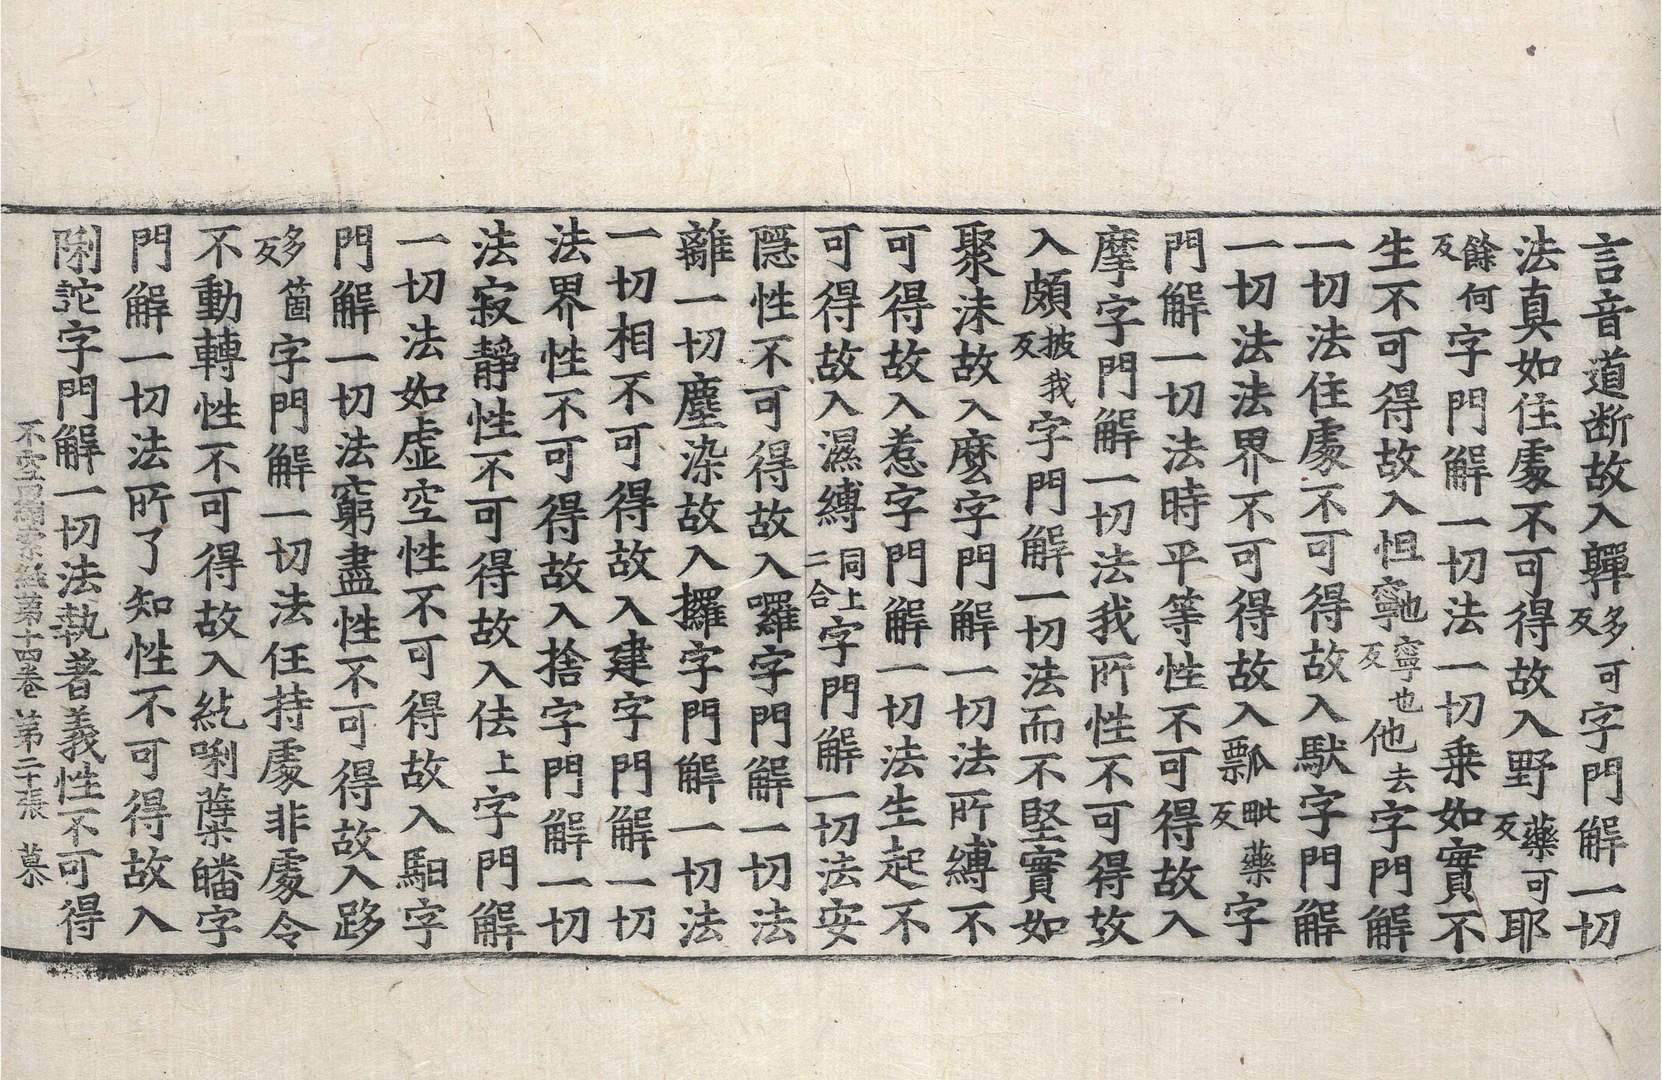 言音道断故入軃多可反字門解一切
法真如住處不可得故入野藥可反耶
餘何反字門解一切法一切乗如實不
生不可得故入怛寧也反他去字門解
一切法住處不可得故入馱字門解
一切法法界不可得故入瓢毗藥反字
門解一切法時平等性不可得故入
摩字門解一切法我所性不可得故
入頗披我反字門解一切法而不堅實如
聚沫故入麼字門解一切法所縛不
可得故入惹字門解一切法生起不
可得故入濕縛同上二合字門解一切法安
隱性不可得故入囉字門解一切法
離一切塵染故入攞字門解一切法
一切相不可得故入建字門解一切
法界性不可得故入捨字門解一切
法寂靜性不可得故入佉上字門解
一切法如虛空性不可得故入馹字
門解一切法窮盡性不可得故入跢
多箇反字門解一切法任持處非處令
不動轉性不可得故入紇唎蘖皤字
門解一切法所了知性不可得故入
唎詑字門解一切法執著義性不可得
不空羂索經第十四卷 第二十張 慕